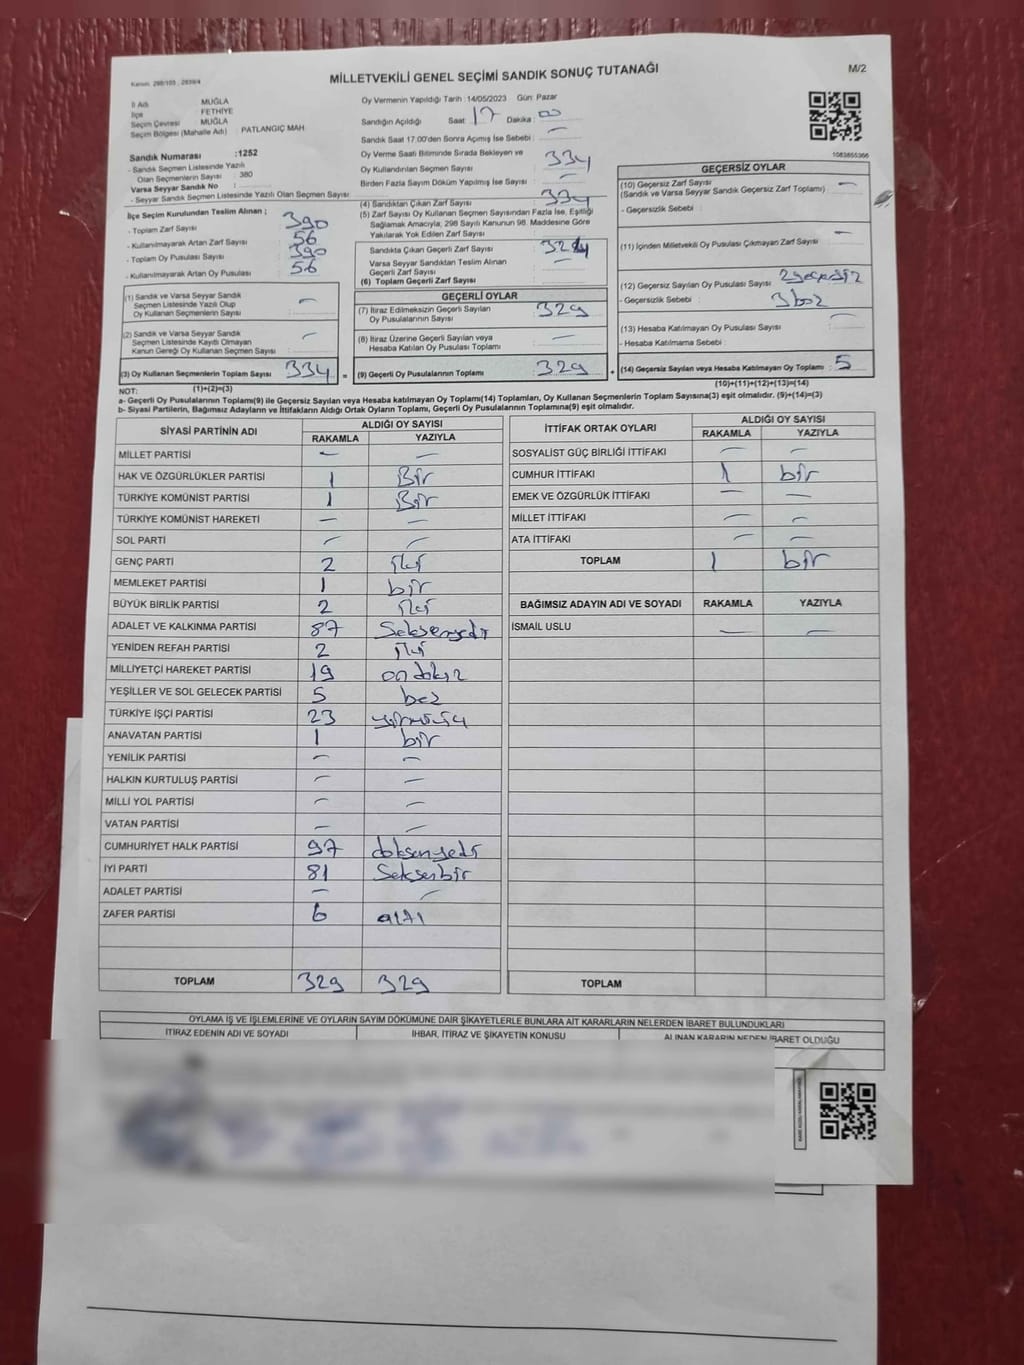 Kanun: 298/105 ; 2839/4
MİLLETVEKİLİ GENEL SEÇİMİ SANDIK SONUÇ TUTANAĞI
M/2
İl Adı MUĞLA
İlçe FETHİYE
Seçim Çevresi MUĞLA
Seçim Bölgesi (Mahalle Adı) PATLANGIÇ MAH
Sandık Numarası :1252
- Sandık Seçmen Listesinde Yazılı
Olan Seçmenlerin Sayısı : 380
Varsa Seyyar Sandık No :
- Seyyar Sandık Seçmen Listesinde Yazılı Olan Seçmen Sayısı
İlçe Seçim Kurulundan Teslim Alınan ;
- Toplam Zarf Sayısı : 390
- Kullanılmayarak Artan Zarf Sayısı : 56
- Toplam Oy Pusulası Sayısı : 390
- Kullanılmayarak Artan Oy Pusulası : 56
(1) Sandık ve Varsa Seyyar Sandık
Seçmen Listesinde Yazılı Olup
Oy Kullanan Seçmenlerin Sayısı : –
(2) Sandık ve Varsa Seyyar Sandık
Seçmen Listesinde Kayıtlı Olmayan
Kanun Gereği Oy Kullanan Seçmen Sayısı : –
(3) Oy Kullanan Seçmenlerin Toplam Sayısı : 334 =
(1)+(2)=(3)
Oy Vermenin Yapıldığı Tarih : 14/05/2023 Gün: Pazar
Sandığın Açıldığı Saat : 17 Dakika : 00
Sandık Saat 17.00'den Sonra Açılmış İse Sebebi : –
Oy Verme Saati Bitiminde Sırada Bekleyen ve
Oy Kullandırılan Seçmen Sayısı : 334
Birden Fazla Sayım Döküm Yapılmış İse Sayısı : –
(4) Sandıktan Çıkan Zarf Sayısı : 334
(5) Zarf Sayısı Oy Kullanan Seçmen Sayısından Fazla İse, Eşitliği
Sağlamak Amacıyla; 298 Sayılı Kanunun 98. Maddesine Göre
Yakılarak Yok Edilen Zarf Sayısı :
Sandıkta Çıkan Geçerli Zarf Sayısı :
Varsa Seyyar Sandıktan Teslim Alınan
Geçerli Zarf Sayısı : –
(6) Toplam Geçerli Zarf Sayısı :
GEÇERLİ OYLAR
(7) İtiraz Edilmeksizin Geçerli Sayılan
Oy Pusulalarının Sayısı : 329
(8) İtiraz Üzerine Geçerli Sayılan veya
Hesaba Katılan Oy Pusulası Toplamı : –
(9) Geçerli Oy Pusulalarının Toplamı : 329 +
1083855366
GEÇERSİZ OYLAR
(10) Geçersiz Zarf Sayısı
(Sandık ve Varsa Seyyar Sandık Geçersiz Zarf Toplamı) : –
- Geçersizlik Sebebi :
(11) İçinden Milletvekili Oy Pusulası Çıkmayan Zarf Sayısı : –
(12) Geçersiz Sayılan Oy Pusulası Sayısı : 2 geçersiz
- Geçersizlik Sebebi : 3 boş
(13) Hesaba Katılmayan Oy Pusulası Sayısı : –
- Hesaba Katılmama Sebebi :
(14) Geçersiz Sayılan veya Hesaba Katılmayan Oy Toplamı : 5
(10)+(11)+(12)+(13)=(14)
NOT:
a- Geçerli Oy Pusulalarının Toplamı(9) ile Geçersiz Sayılan veya Hesaba katılmayan Oy Toplamı(14) Toplamları, Oy Kullanan Seçmenlerin Toplam Sayısına(3) eşit olmalıdır. (9)+(14)=(3)
b- Siyasi Partilerin, Bağımsız Adayların ve İttifakların Aldığı Ortak Oyların Toplamı, Geçerli Oy Pusulalarının Toplamına(9) eşit olmalıdır.
SİYASİ PARTİNİN ADI ALDIĞI OY SAYISI
RAKAMLA YAZIYLA
MİLLET PARTİSİ – –
HAK VE ÖZGÜRLÜKLER PARTİSİ 1 Bir
TÜRKİYE KOMÜNİST PARTİSİ 1 Bir
TÜRKİYE KOMÜNİST HAREKETİ – –
SOL PARTİ – –
GENÇ PARTİ 2 iki
MEMLEKET PARTİSİ 1 bir
BÜYÜK BİRLİK PARTİSİ 2 iki
ADALET VE KALKINMA PARTİSİ 87 Seksenyedi
YENİDEN REFAH PARTİSİ 2 iki
MİLLİYETÇİ HAREKET PARTİSİ 19 ondokuz
YEŞİLLER VE SOL GELECEK PARTİSİ 5 beş
TÜRKİYE İŞÇİ PARTİSİ 23 yirmiüç
ANAVATAN PARTİSİ 1 bir
YENİLİK PARTİSİ – –
HALKIN KURTULUŞ PARTİSİ – –
MİLLİ YOL PARTİSİ – –
VATAN PARTİSİ – –
CUMHURİYET HALK PARTİSİ 97 doksanyedi
İYİ PARTİ 81 Seksenbir
ADALET PARTİSİ – –
ZAFER PARTİSİ 6 altı
TOPLAM 329 329
İTTİFAK ORTAK OYLARI ALDIĞI OY SAYISI
RAKAMLA YAZIYLA
SOSYALİST GÜÇ BİRLİĞİ İTTİFAKI – –
CUMHUR İTTİFAKI 1 bir
EMEK VE ÖZGÜRLÜK İTTİFAKI – –
MİLLET İTTİFAKI – –
ATA İTTİFAKI – –
TOPLAM 1 bir
BAĞIMSIZ ADAYIN ADI VE SOYADI RAKAMLA YAZIYLA
İSMAİL USLU – –
TOPLAM
OYLAMA İŞ VE İŞLEMLERİNE VE OYLARIN SAYIM DÖKÜMÜNE DAİR ŞİKAYETLERLE BUNLARA AİT KARARLARIN NELERDEN İBARET BULUNDUKLARI
İTİRAZ EDENİN ADI VE SOYADI İHBAR, İTİRAZ VE ŞİKAYETİN KONUSU ALINAN KARARIN NEDEN İBARET OLDUĞU